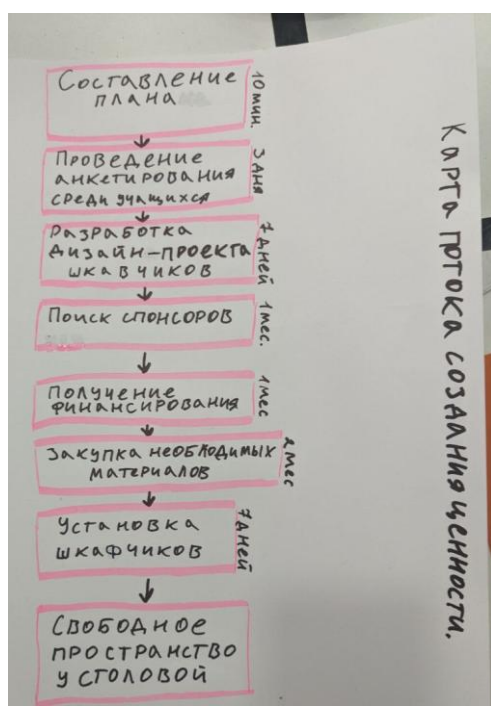 Карта потока создания ценности.
Составление
плана
10 мин.
Проведение
анкетирования
среди учащихся
3 дня
Разработка
дизайн-проекта
шкавчиков
7 дней
Поиск спонсоров
1 мес.
Получение
финансирования
1 мес
Закупка необходимых
материалов
2 мес
Установка
шкафчиков
7 дней
Свободное
пространство
у столовой